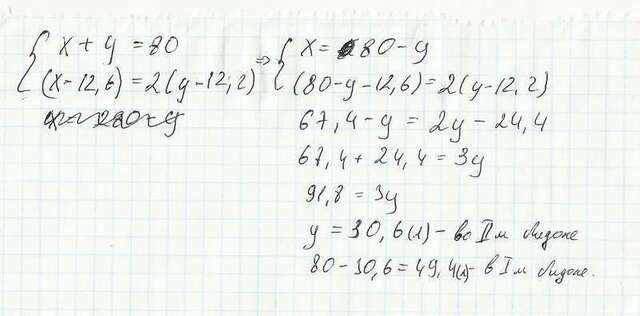 x + y = 80
(x - 12,6) = 2(y - 12,2)
⇒
x = 80 - y
(80 - y - 12,6) = 2(y - 12,2)
67,4 - y = 2y - 24,4
67,4 + 24,4 = 3y
91,8 = 3y
y = 30,6 (л) - во II м бидоне
80 - 30,6 = 49,4 (л) - в I м бидоне.